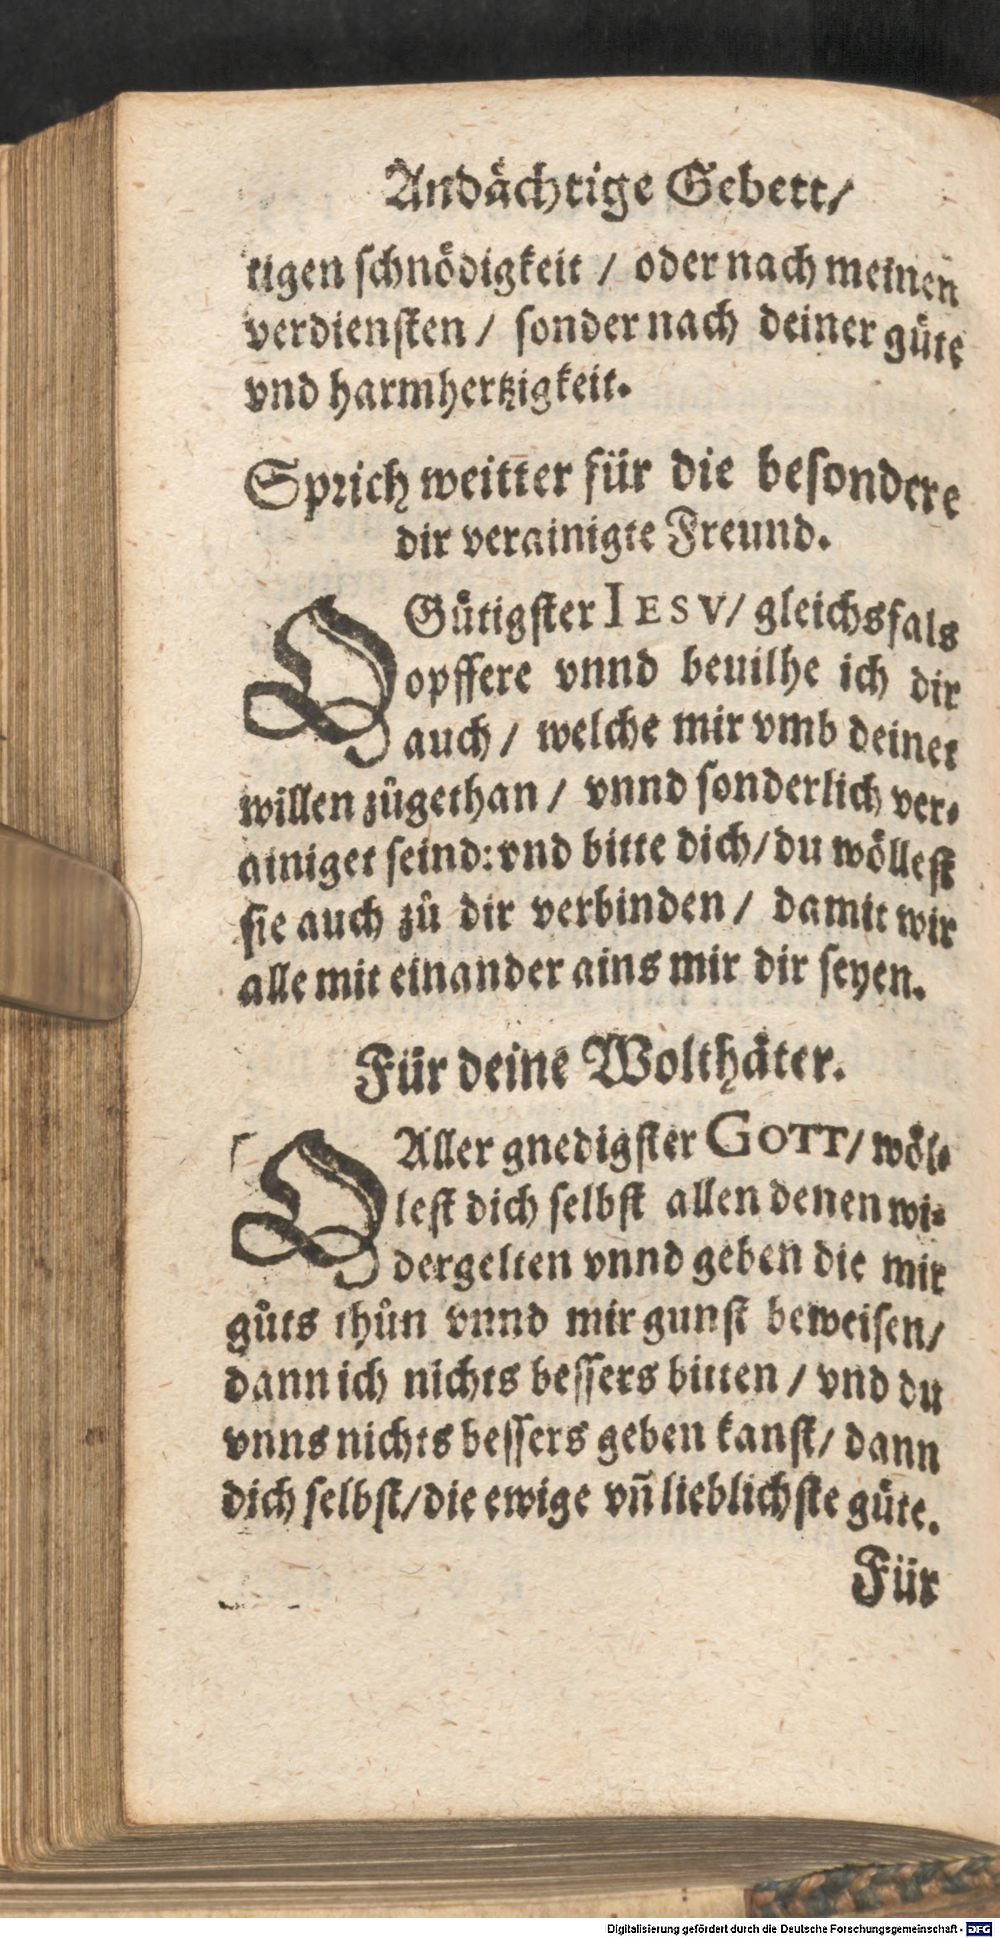 Andaͤchtige Gebett/
tigen ſchnoͤdigkeit / oder nach meinen
verdienſten / ſonder nach deiner guͤte
vnd harmhertzigkeit.
Sprich weitter für die beſondere
dir verainigte Freund.
O Guͤtigſter IESV/ gleichsfals
opffere vnnd beuilhe ich dir
auch / welche mir vmb deinet
willen zůgethan / vnnd ſonderlich ver-
ainiget ſeind: vnd bitte dich/ du woͤlleſt
ſie auch zů dir verbinden / damit wir
alle mit einander ains mir dir ſeyen.
Für deine Wolthaͤter.
O Aller gnedigſter GOTT/ woͤl-
leſt dich ſelbſt allen denen wi-
dergelten vnnd geben die mir
gůts thůn vnnd mir gunſt beweiſen/
dann ich nichts beſſers bitten / vnd du
vnns nichts beſſers geben kanſt/ dann
dich ſelbſt/ die ewige vñ lieblichſte guͤte.
Für
Digitalisierung gefördert durch die Deutsche Forschungsgemeinschaft - DFG